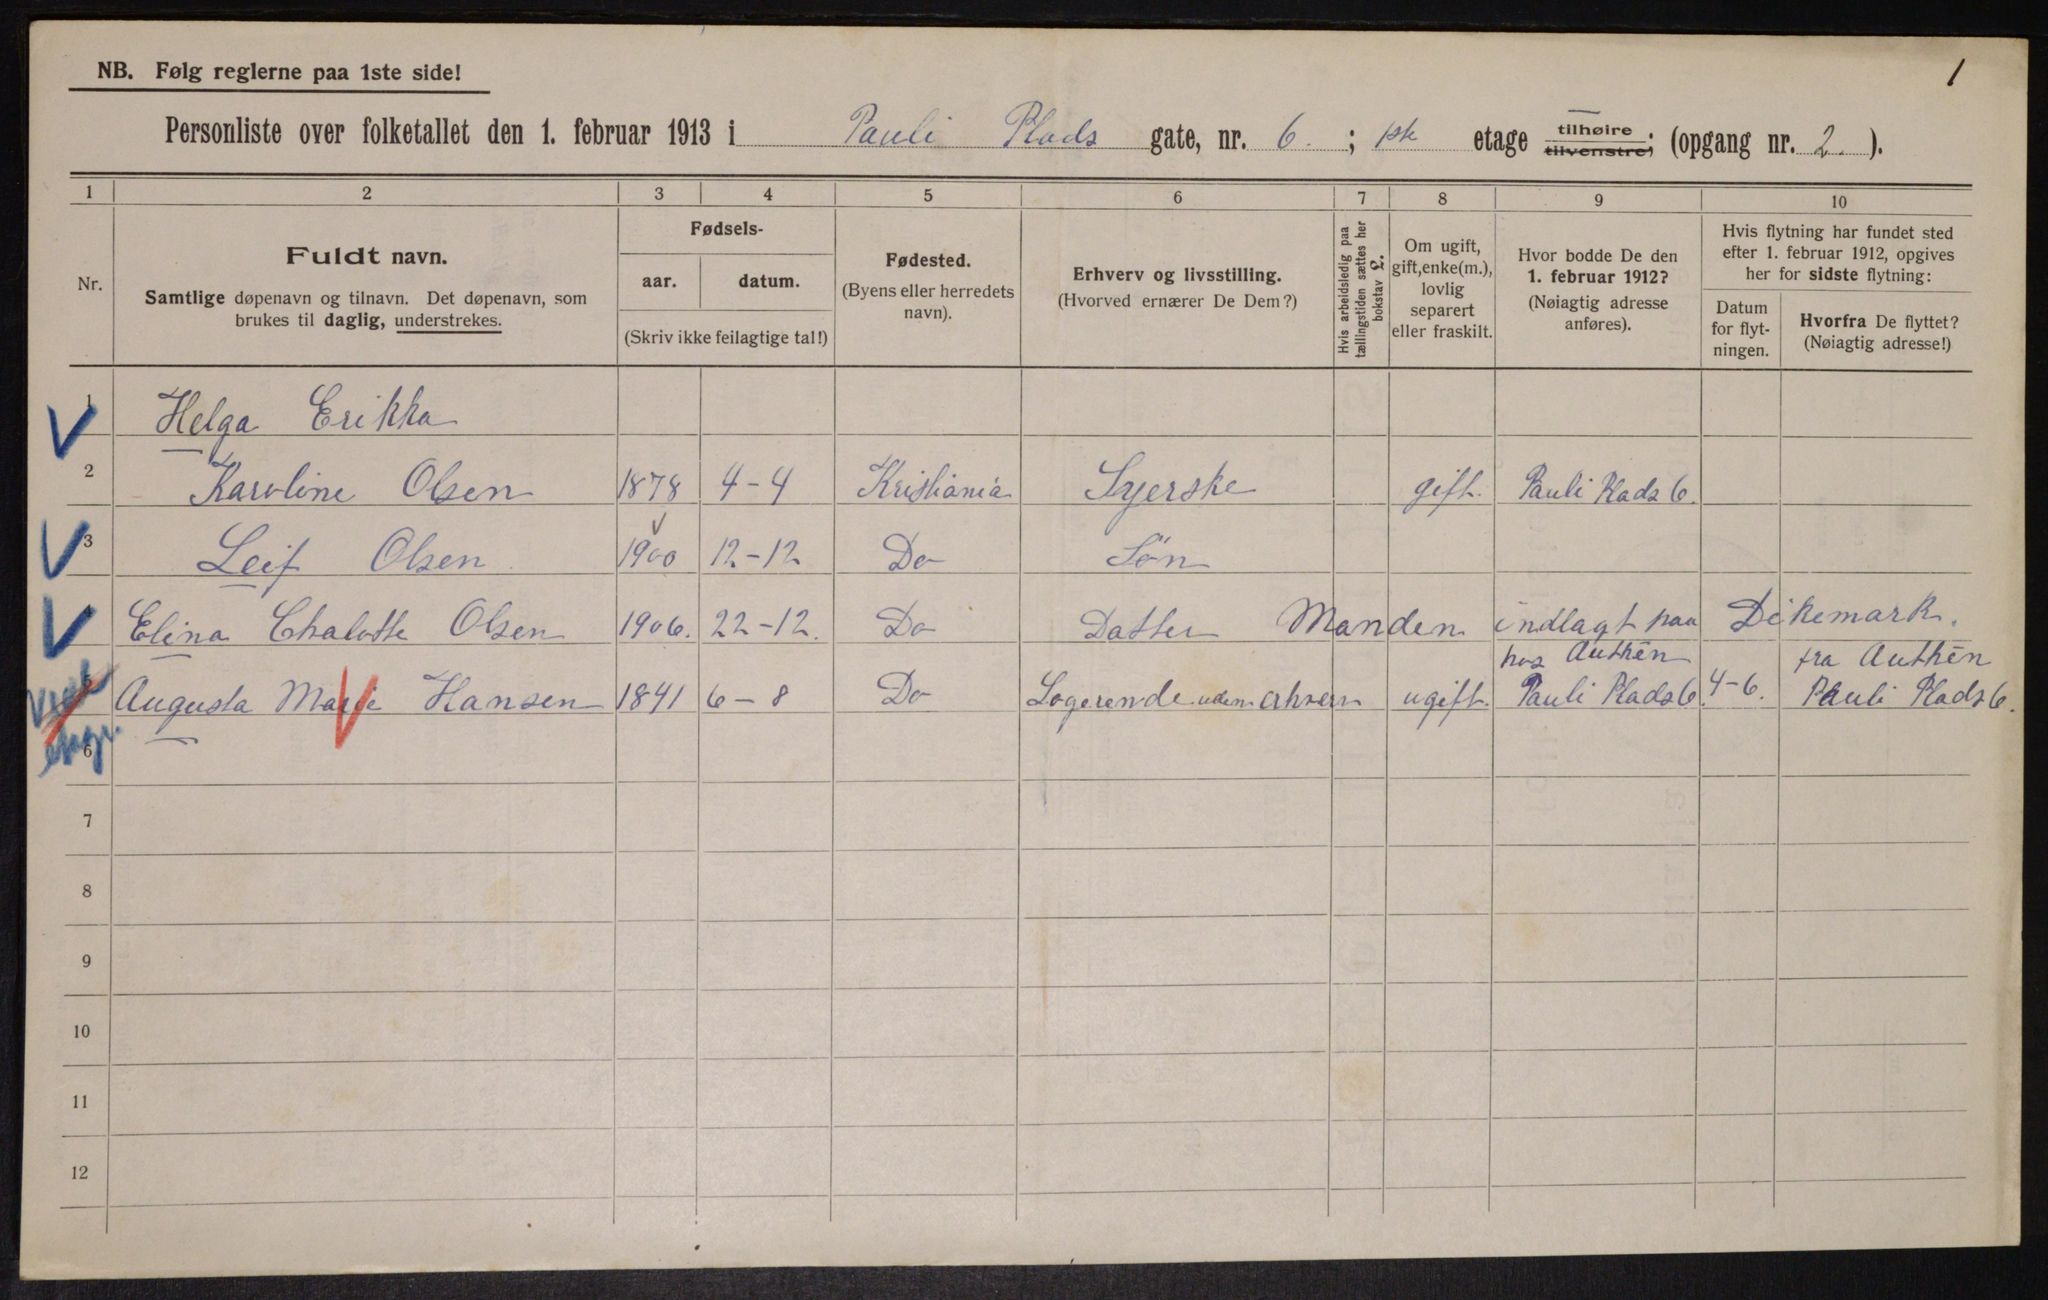 1
NB. Følg reglerne paa 1ste side!
Personliste over folketallet den 1. februar 1913 i Pauli Plads gate, nr. 6. ; 1ste etage tilhøire tilvenstre; (opgang nr. 2. ).
1 2 3 4 5 6 7 8 9 10
Nr.
Fuldt navn.
Samtlige døpenavn og tilnavn. Det døpenavn, som
brukes til daglig, understrekes.
Fødsels-
aar. datum.
(Skriv ikke feilagtige tal!)
Fødested.
(Byens eller herredets
navn).
Erhverv og livsstilling.
(Hvorved ernærer De Dem?)
Hvis arbeidsledig paa
tællingstiden sættes her
bokstav L.
Om ugift,
gift, enke(m.),
lovlig
separert
eller fraskilt.
Hvor bodde De den
1. februar 1912?
(Nøiagtig adresse
anføres).
Hvis flytning har fundet sted
efter 1. februar 1912, opgives
her for sidste flytning:
Datum
for flyt-
ningen.
Hvorfra De flyttet?
(Nøiagtig adresse!)
1 Helga Erikka
2 Karoline Olsen 1878 4-4 Kristiania Syerske gift. Pauli Plads 6.
3 Leif Olsen 1900 12-12 Do Søn
Elina Chalotte Olsen 1906. 22-12. Do Datter Manden indlagt paa Dikemark.
hos Authén fra Authén
Augusta Marie Hansen 1841 6-8 Do Logerende uden erhverv ugift. Pauli Plads 6. 4-6. Pauli Plads 6.
6
7
8
9
10
11
12